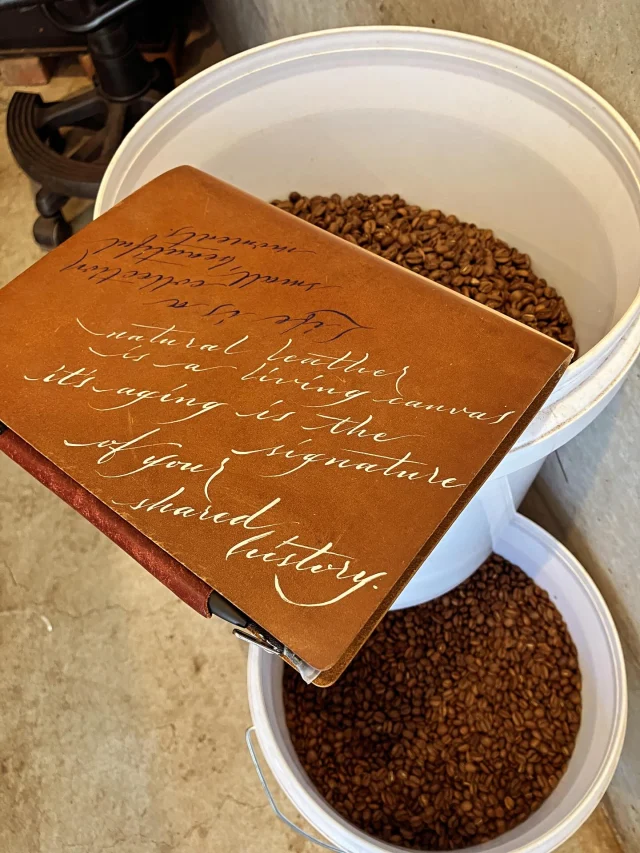 Life is a
collection
small, beautiful
moments.
natural leather
is a living canvas
it's aging is the
signature
of your
shared
history.